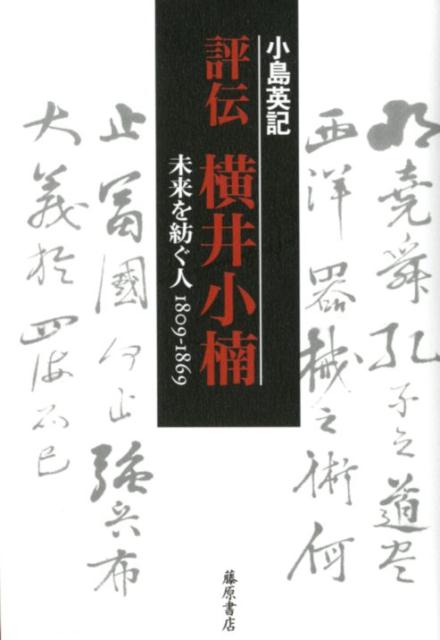 明堯舜孔子之道尽
西洋器械之術何
小島英記
評伝 横井小楠
未来を紡ぐ人 1809-1869
止富國何止強兵布
大義於四海而已
藤原書店